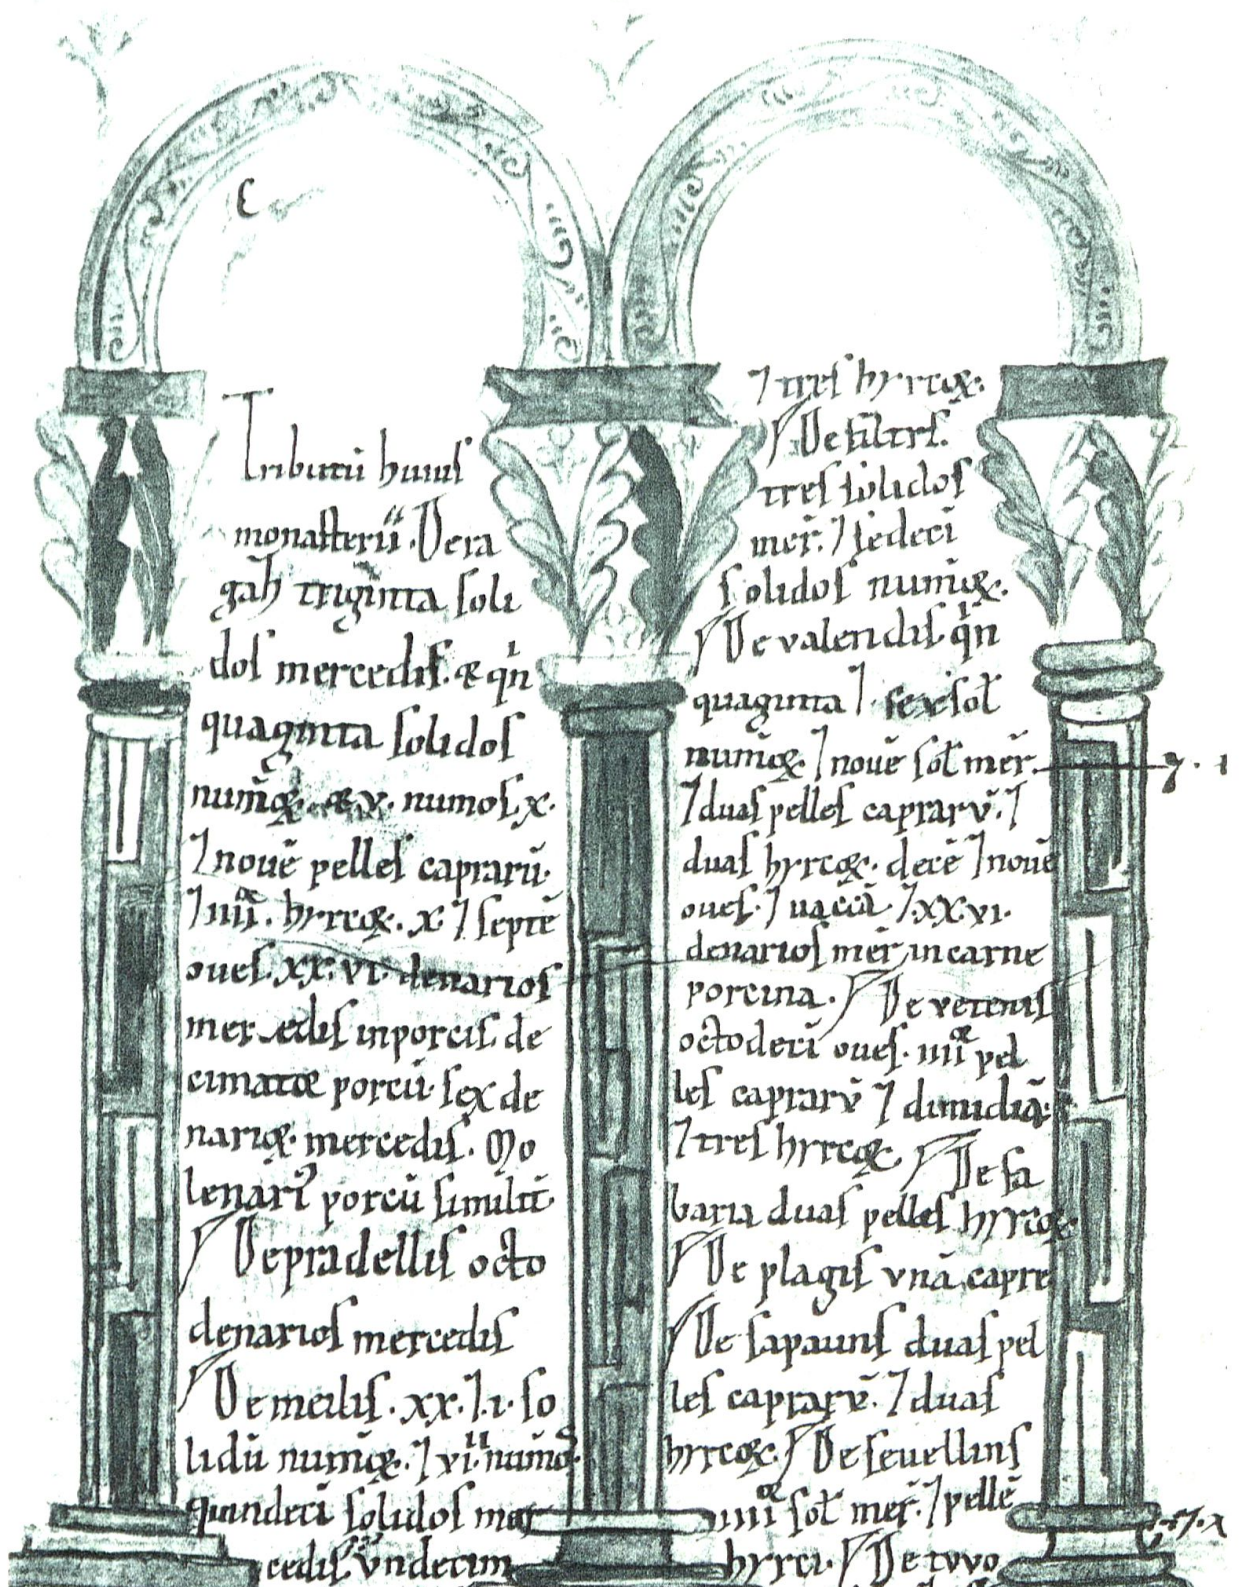 Tributū huius
monasterii. De ra
gaħ triginta soli
dos mercedis. & qn̄
quaginta solidos
num̄oꝝ. & v. numos x.
⁊ nouē pelles caprarū.
⁊ iiii. hyrcoꝝ. x. ⁊ septē
oues. xx. vi. denarios
mercedis in porcis. de
cimatoe porcū. sex de
narioꝝ mercedis. Mo
lenarī porcū similit̄.
De pradellis octo
denarios mercedis
De meilis. xx. ⁊ .i. so
lidū num̄oꝝ. ⁊ vii. num̄oꝝ.
quindecī solidos mer
cedis. vndecim
⁊ tres hyrcoꝝ.
De filtrs.
tres solidos
mer̄. ⁊ sedecī
solidos num̄oꝝ.
De valendis qn̄
quaginta ⁊ sex soł
num̄oꝝ. ⁊ nouē soł mer̄.
⁊ duas pelles caprarū. ⁊
duas hyrcoꝝ. decē ⁊ nouē
oues. ⁊ uaccā. ⁊ .xx. vi.
denarios mer̄ in carne
porcina. De vetenis
octodecī oues. iiii pel
les caprarū ⁊ dimidiā.
⁊ tres hyrcoꝝ. De fa
baria duas pelles hyrcoꝝ.
De plagis vnā capre
De sapauns duas pel
les caprarū. ⁊ duas
hyrcoꝝ. De seuellins
iiii soł mer̄. ⁊ pellē
hyrci. De tvvo